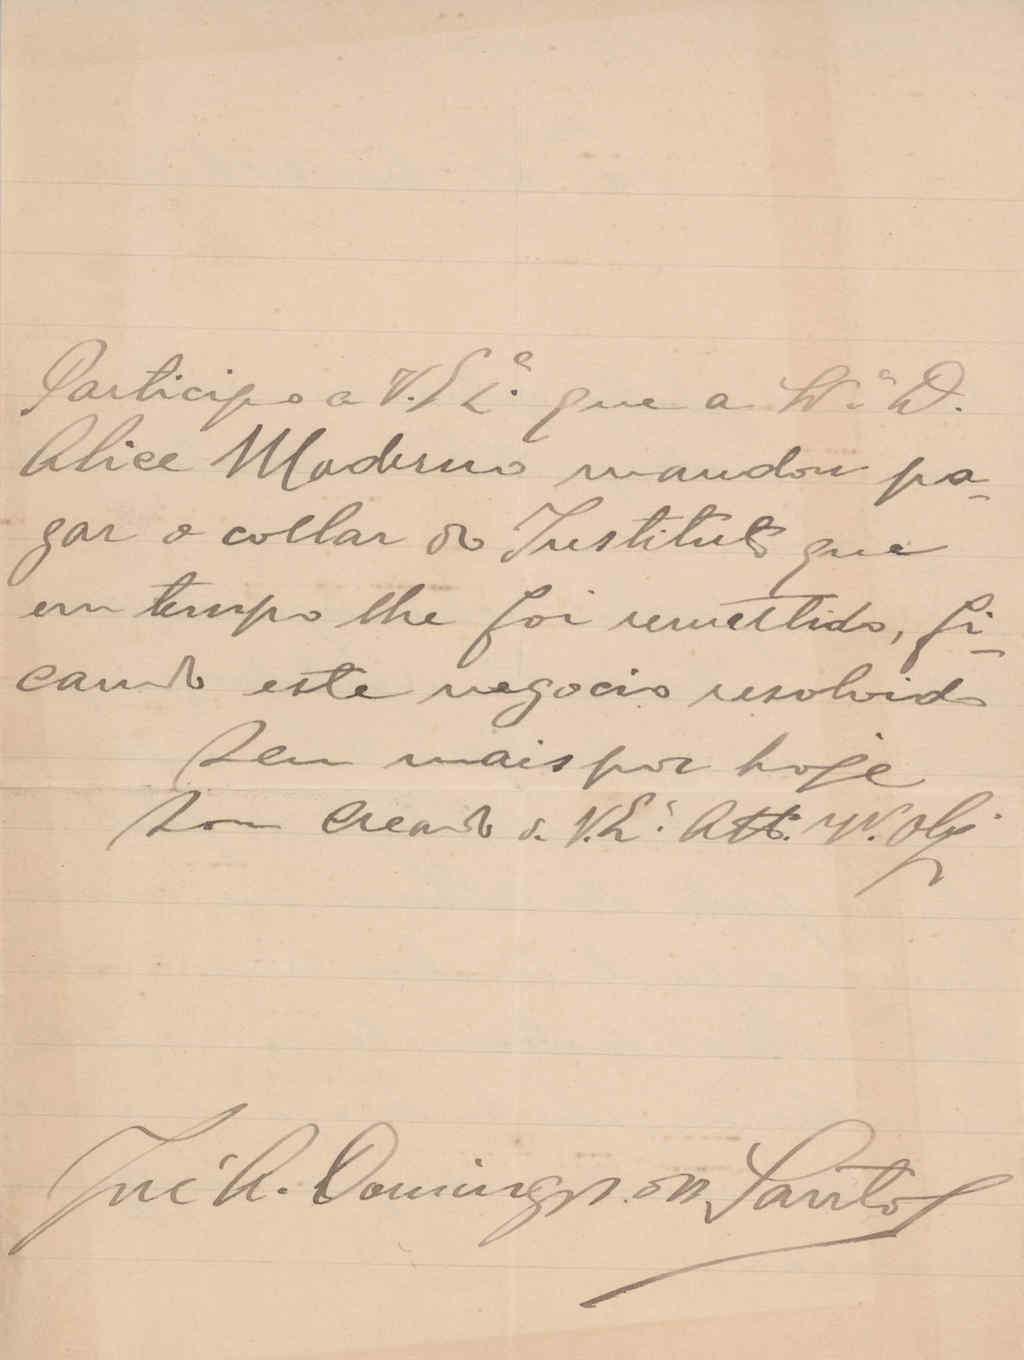 Participo a V. Ex.ª que a Sr.ª D.
Alice Moderno mandou pa-
gar o collar do Instituto que
em tempo lhe foi remettido, fi-
cando este negocio resolvido
Sem mais por hoje
Sou Creado de V. Ex.ª Att.º V.ºr Obg.
José A. Domingos dos Santos